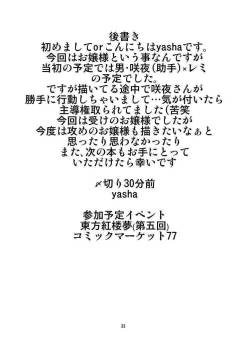 後書き
初めましてorこんにちはyashaです。
今回はお嬢様という事なんですが
当初の予定では男・咲夜(助手)×レミ
の予定でした。
ですが描いてる途中で咲夜さんが
勝手に行動しちゃいまして…気が付いたら
主導権取られてました(苦笑
今回は受けのお嬢様でしたが
今度は攻めのお嬢様も描きたいなぁと
思ったり思わなかったり
また、次の本もお手にとって
いただけたら幸いです
〆切り30分前
yasha
参加予定イベント
東方紅楼夢(第五回)
コミックマーケット77